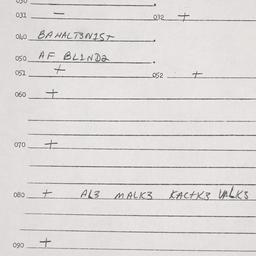 030 .
031 — 032 +
040 BANALT3N1ST .
050 AF BL1ND2 .
051 + 052 +
060 +
070 +
080 + AL3 MALK3 KACTK3
090 +